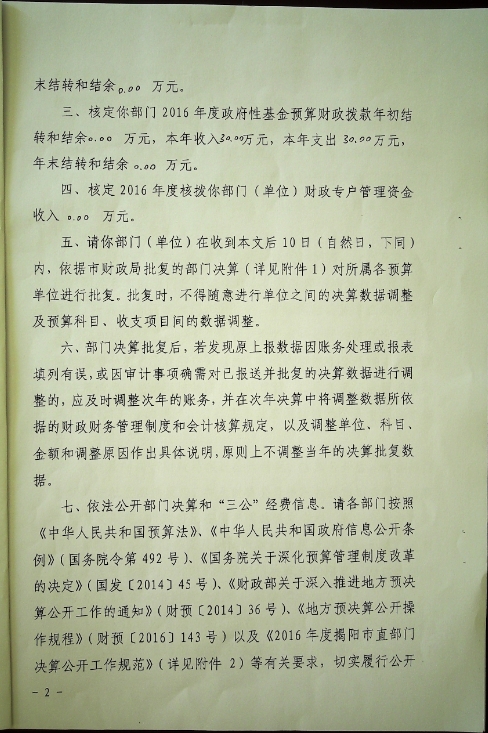 末结转和结余0.00 万元。
三、核定你部门 2016 年度政府性基金预算财政拨款年初结
转和结余0.00 万元，本年收入30.00万元，本年支出 30.00万元，
年末结转和结余 0.00 万元。
四、核定 2016 年度核拨你部门（单位）财政专户管理资金
收入 0.00 万元。
五、请你部门（单位）在收到本文后 10 日（自然日，下同）
内，依据市财政局批复的部门决算（详见附件 1）对所属各预算
单位进行批复。批复时，不得随意进行单位之间的决算数据调整
及预算科目、收支项目间的数据调整。
六、部门决算批复后，若发现原上报数据因账务处理或报表
填列有误，或因审计事项确需对已报送并批复的决算数据进行调
整的，应及时调整次年的账务，并在次年决算中将调整数据所依
据的财政财务管理制度和会计核算规定，以及调整单位、科目、
金额和调整原因作出具体说明，原则上不调整当年的决算批复数
据。
七、依法公开部门决算和“三公”经费信息。请各部门按照
《中华人民共和国预算法》、《中华人民共和国政府信息公开条
例》（国务院令第 492 号）、《国务院关于深化预算管理制度改革
的决定》（国发〔2014〕45 号）、《财政部关于深入推进地方预决
算公开工作的通知》（财预〔2014〕36 号）、《地方预决算公开操
作规程》（财预〔2016〕143 号）以及《2016 年度揭阳市直部门
决算公开工作规范》（详见附件 2）等有关要求，切实履行公开
- 2 -